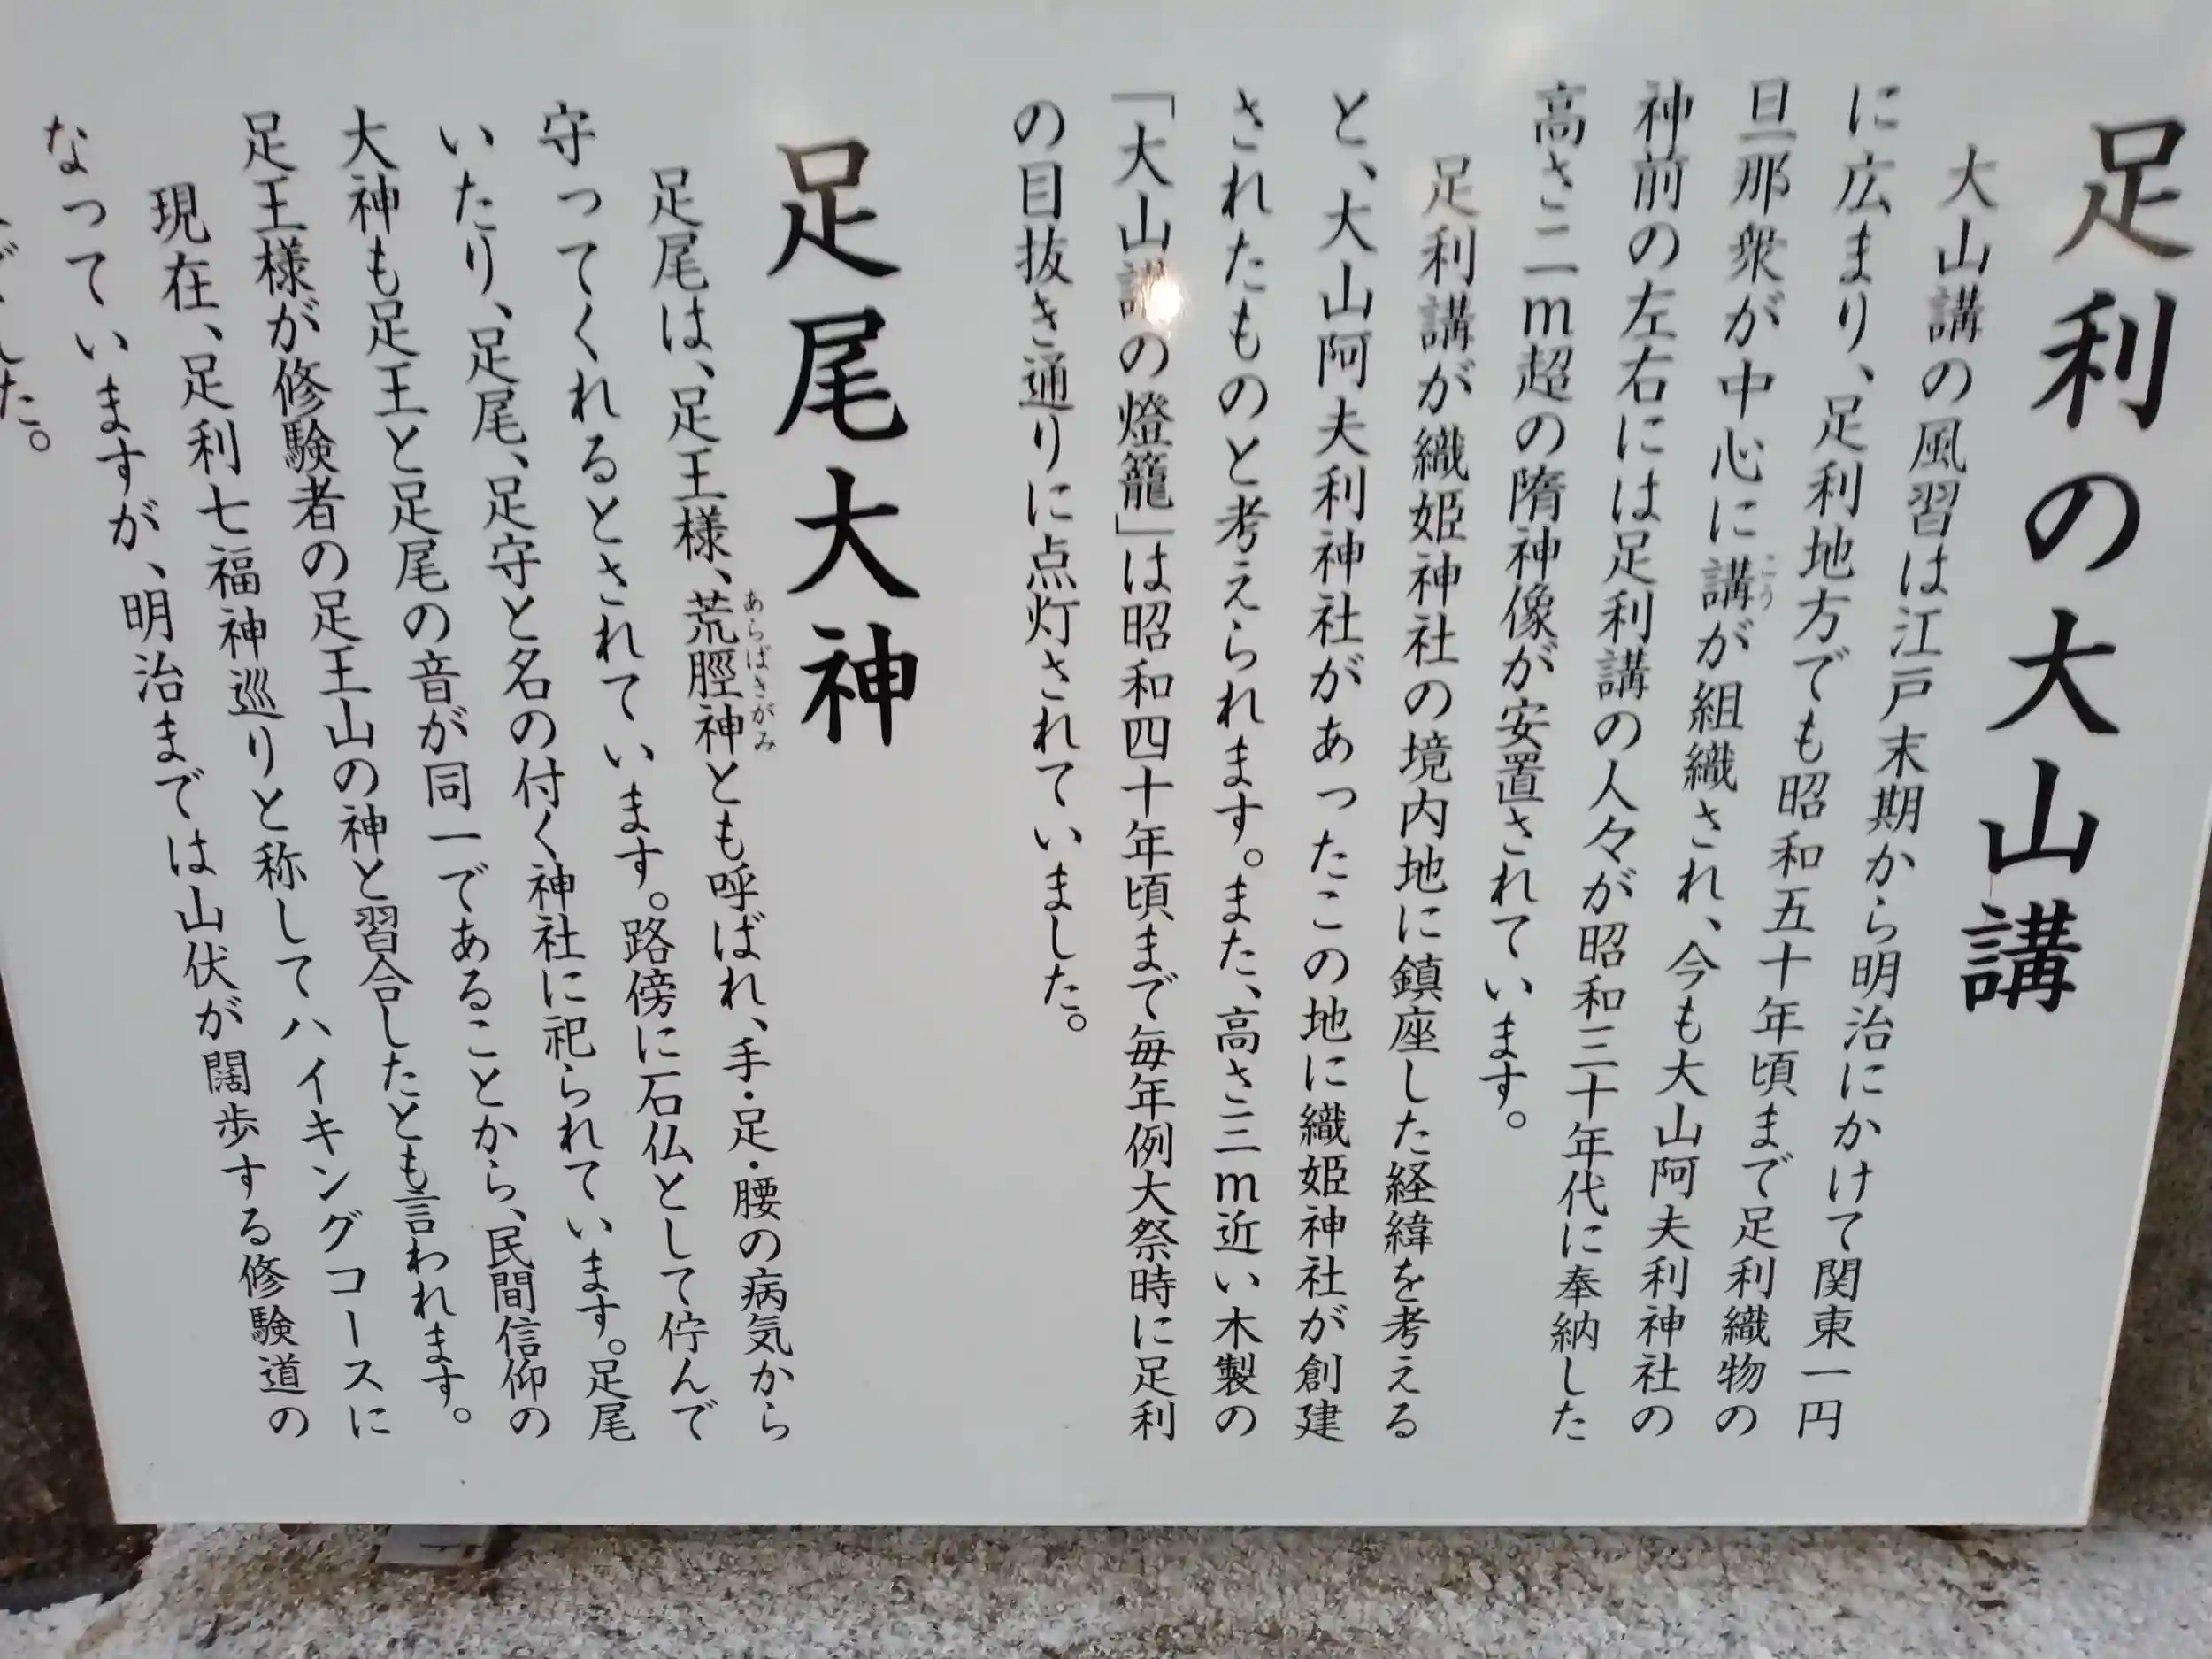 足利の大山講
大山講の風習は江戸末期から明治にかけて関東一円
に広まり、足利地方でも昭和五十年頃まで足利織物の
旦那衆が中心に講が組織され、今も大山阿夫利神社の
こう
神前の左右には足利講の人々が昭和三十年代に奉納した
高さ二m超の隋神像が安置されています。
足利講が織姫神社の境内地に鎮座した経緯を考える
と、大山阿夫利神社があったこの地に織姫神社が創建
されたものと考えられます。また、高さ三m近い木製の
「大山講の燈籠」は昭和四十年頃まで毎年例大祭時に足利
の目抜き通りに点灯されていました。
足尾大神
足尾は、足王様、荒脛神とも呼ばれ、手・足・腰の病気から
あらばきがみ
守ってくれるとされています。路傍に石仏として佇んで
いたり、足尾、足守と名の付く神社に祀られています。足尾
大神も足王と足尾の音が同一であることから、民間信仰の
足王様が修験者の足王山の神と習合したとも言われます。
現在、足利七福神巡りと称してハイキングコースに
なっていますが、明治までは山伏が闊歩する修験道の
した。